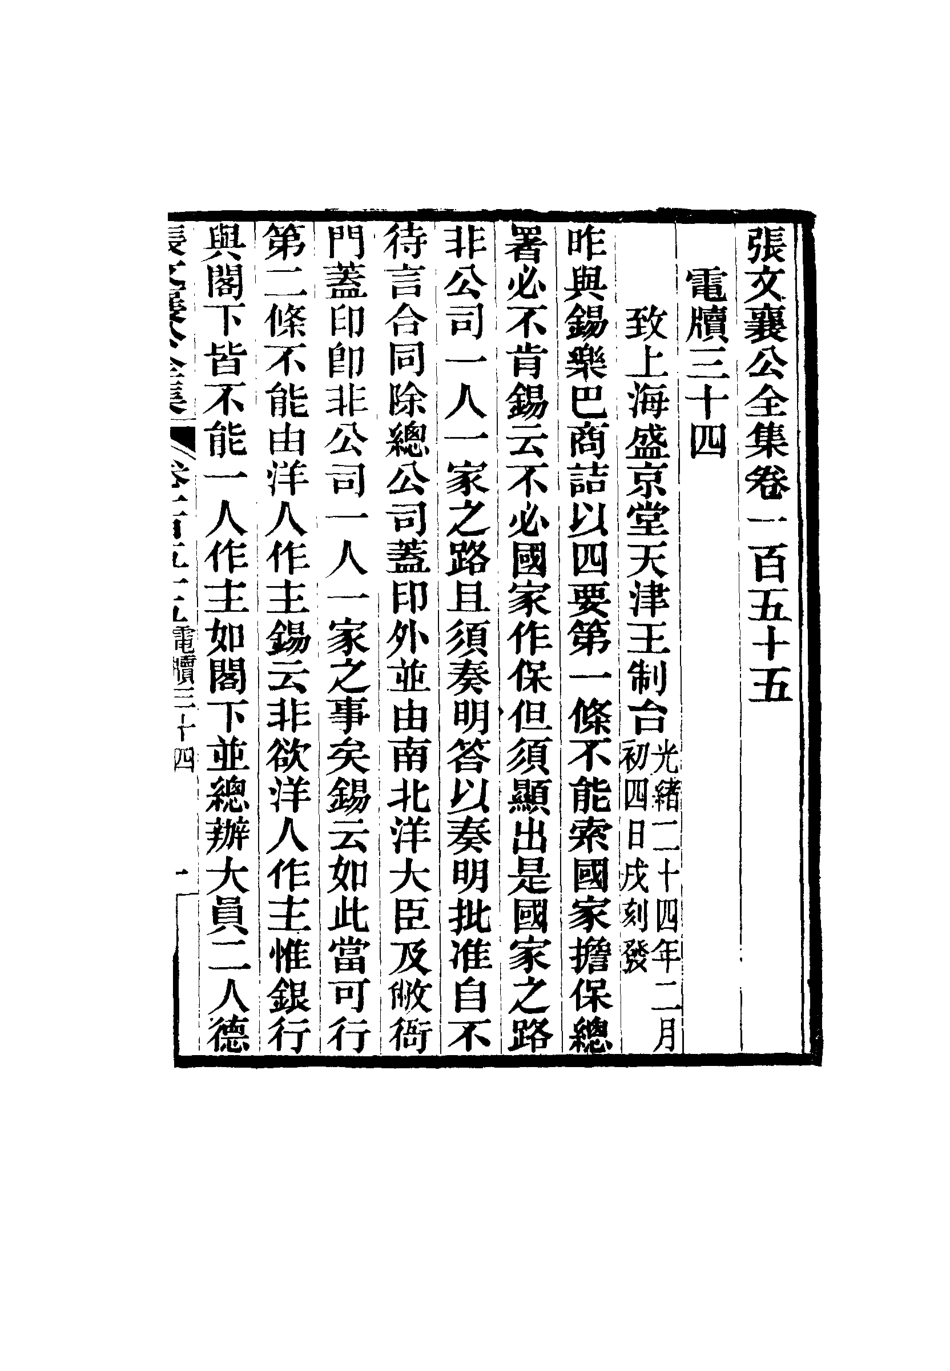 張文襄公全集卷一百五十五
電牘三十四
致上海盛京堂天津王制台光緒二十四年二月初四日戌刻發
昨與錫樂巴商詰以四要第一條不能索國家擔保總
署必不肯錫云不必國家作保但須顯出是國家之路
非公司一人一家之路且須奏明答以奏明批准自不
待言合同除總公司蓋印外並由南北洋大臣及敝衙
門蓋印卽非公司一人一家之事矣錫云如此當可行
第二條不能由洋人作主錫云非欲洋人作主惟銀行
與閣下皆不能一人作主如閣下並總辦大員二人德
張文襄公全集 卷一百五十五 電牘三十四 一